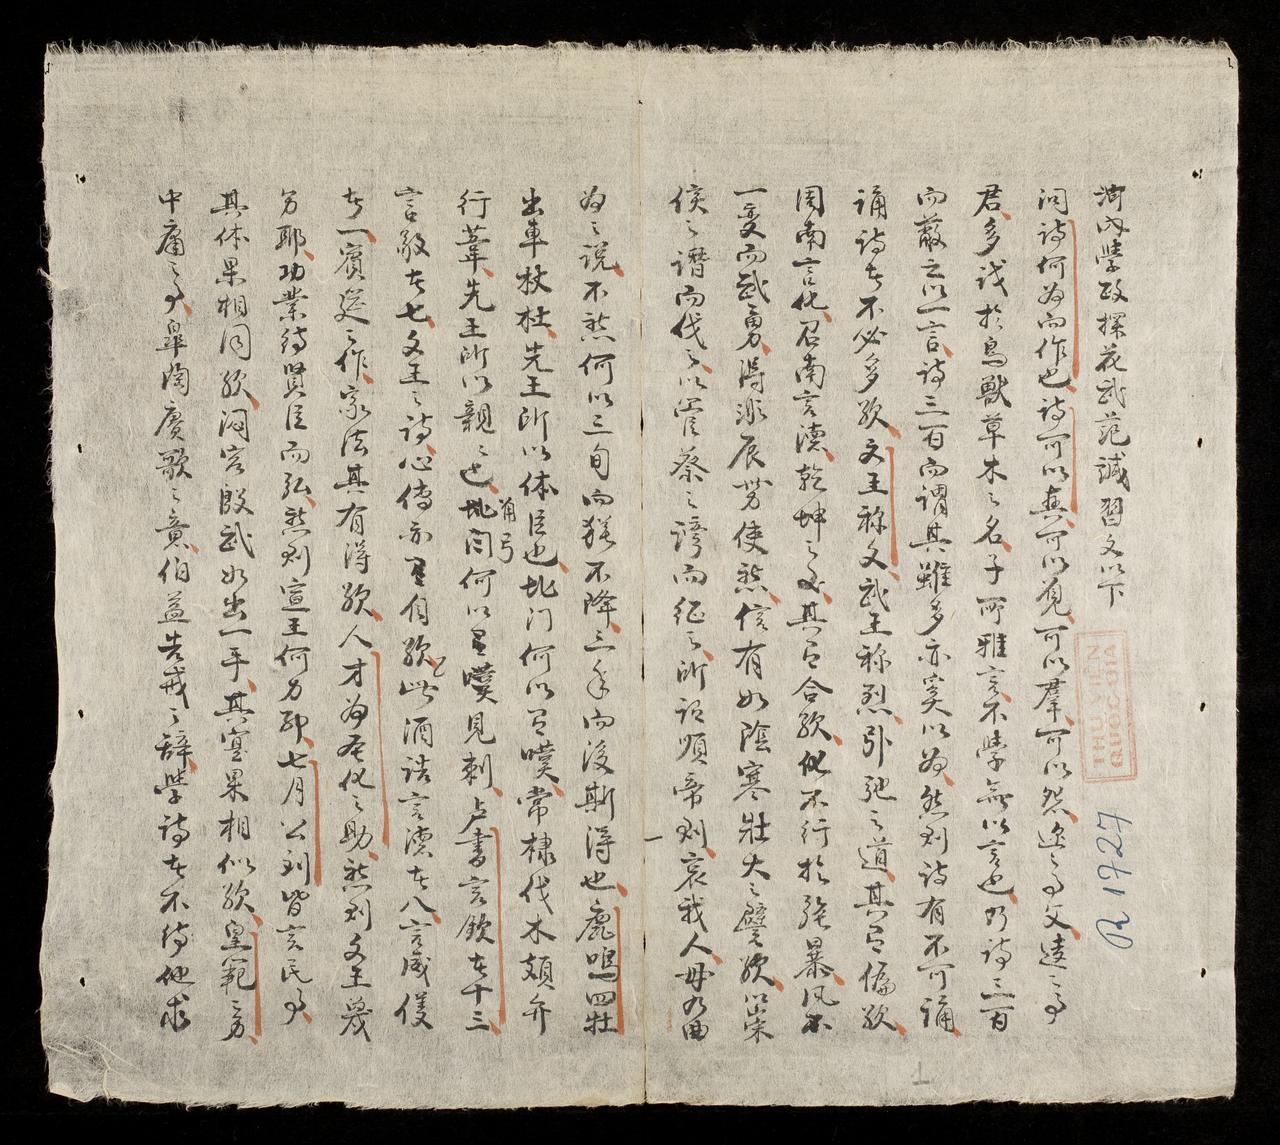 河内學政探花武范諴習文以下
問詩何為而作也詩可以興可以覓可以羣可以怨迩之事父遠之事
君多识於鳥獸草木之名子所雅言不學無以言也乃詩三百
而蔽之以一言詩三百而謂其雖多亦奚以為然則詩有不可誦
誦詩者不必多欤文王称文武王称烈引弛之道其有偏欤
周南言化召南言德乾坤之交其有合欤化不行於强暴风不
一变而武勇得涿辰劳使然信有如陰寒壯大之譬欤以崇
侯之譖而伐之以管蔡之謗而征之所谓順帝則哀我人毋乃曲
為之説不然何以三旬而猶不降三年而後斯得也鹿鳴四牡
出車杕杜先王所以体臣也北门何以有嘆常棣伐木頍弁
行葦先王所以親之也角弓何以有嘆見刺虞書言欽者十三
言敬者七文王之詩心傳亦有自欤此酒誥言德者八言威儀
者一賓筵之作家法其有得欤人才為聖化之助然則文王豈
另耶功業待賢臣而弘然则宣王何另耶七月公刘皆言民事
其体果相同欤泂宫殷武如出一手其寔果相似欤皇範之另
中庸之事皐陶賡歌之意伯益告戒之辞學詩者不待他求
THƯ VIỆN
QUOC GIA
R 1727
1